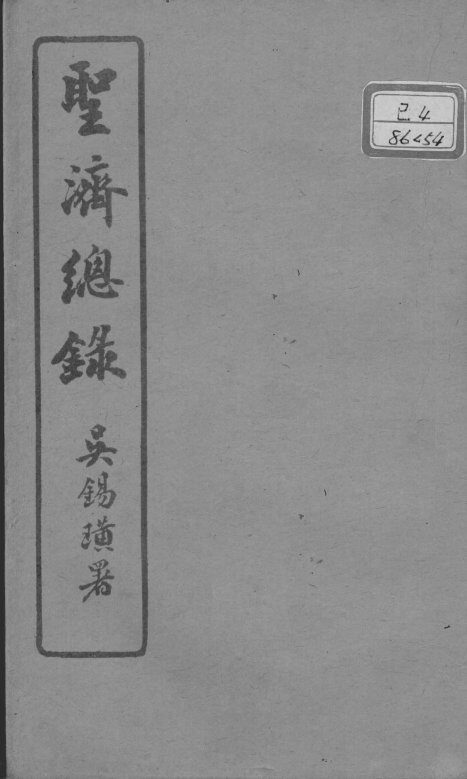 聖濟總錄
吳錫璜署
已4
86454